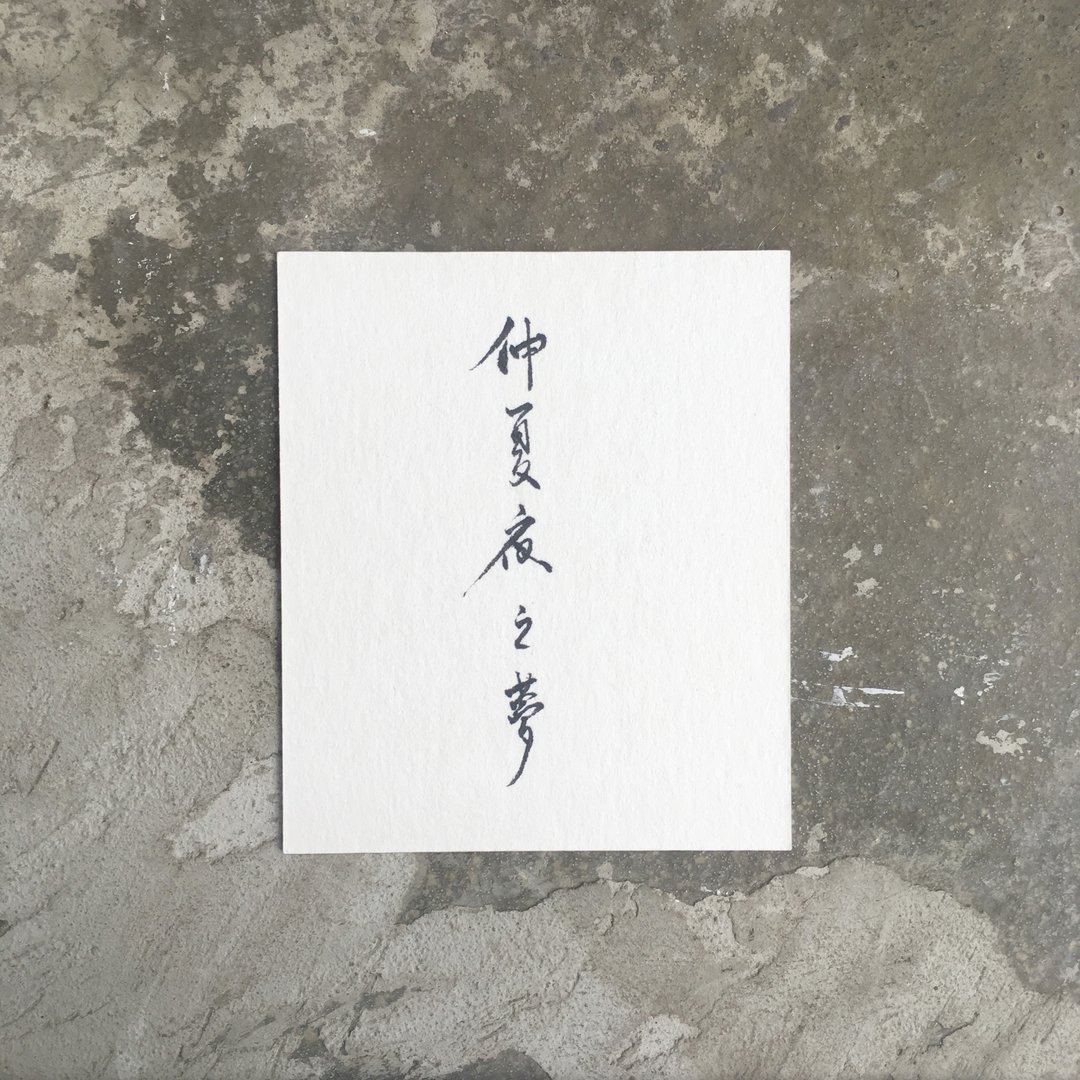 仲夏夜之夢